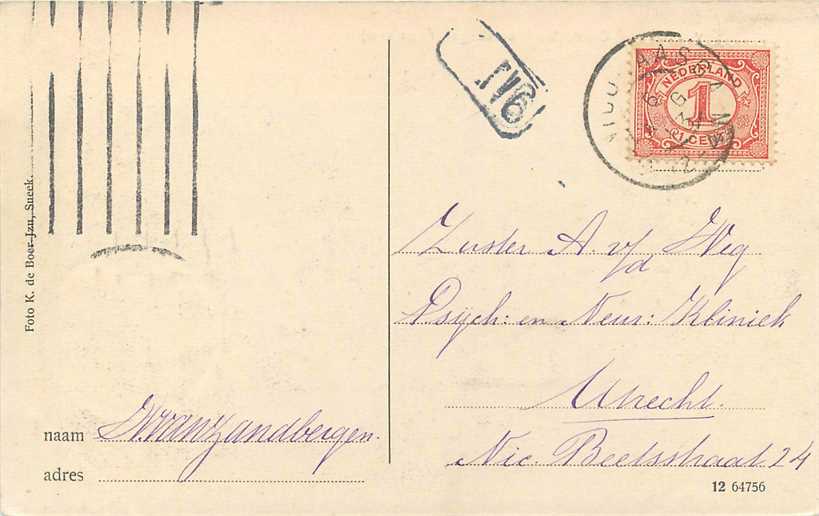 Foto K. de Boer Jzn, Sneek.
IV6
NEDERLAND
1
CENT
Zuster A. v/d Weg
Psych: en Neur: Kliniek
Utrecht.
Nic Beetsstraat 24
naam van Zandbergen.
adres
12 64756